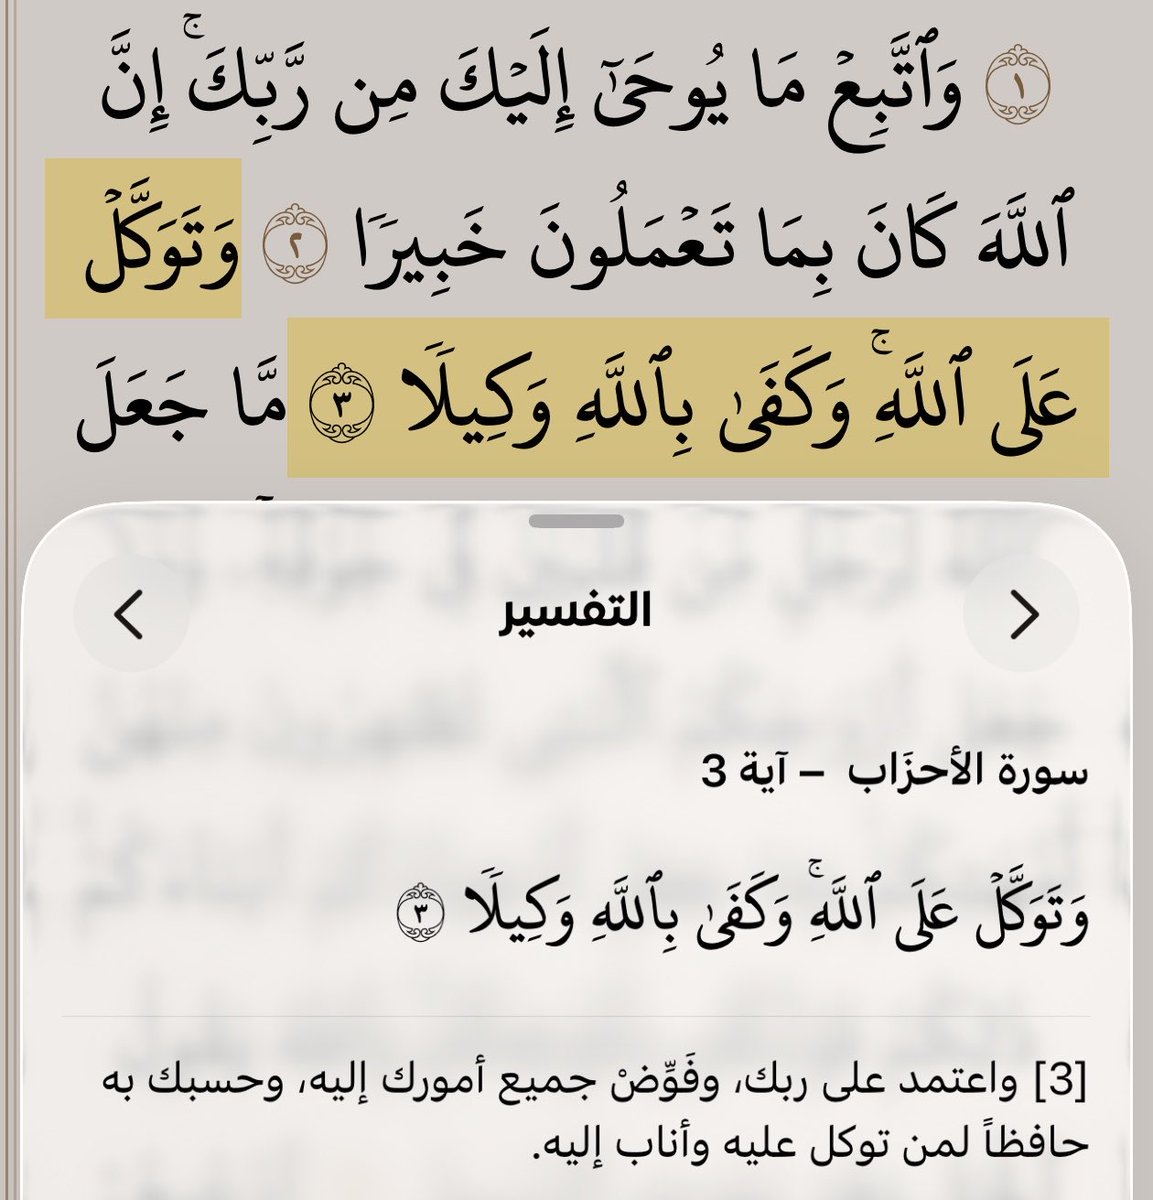 ١ وَٱتَّبِعۡ مَا يُوحَىٰٓ إِلَيۡكَ مِن رَّبِّكَۚ إِنَّ
ٱللَّهَ كَانَ بِمَا تَعۡمَلُونَ خَبِيرٗا ٢ وَتَوَكَّلۡ
عَلَى ٱللَّهِۚ وَكَفَىٰ بِٱللَّهِ وَكِيلٗا ٣ مَّا جَعَلَ
التفسير
سورة الأحزَاب – آية 3
وَتَوَكَّلۡ عَلَى ٱللَّهِۚ وَكَفَىٰ بِٱللَّهِ وَكِيلٗا ٣
[3] واعتمد على ربك، وفَوِّضْ جميع أمورك إليه، وحسبك به
حافظاً لمن توكل عليه وأناب إليه.